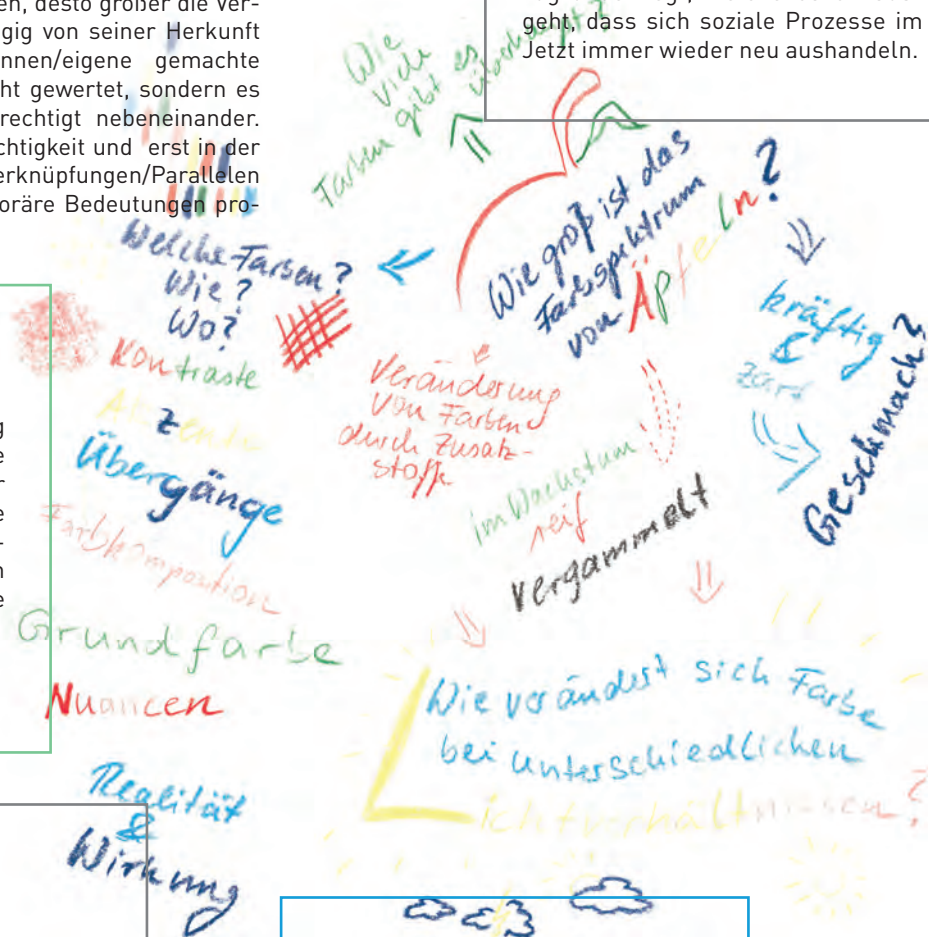 en, desto größer die Ver-
gig von seiner Herkunft
nnen/eigene gemachte
ht gewertet, sondern es
rechtigt nebeneinander.
chtigkeit und erst in der
erknüpfungen/Parallelen
oräre Bedeutungen pro-
geht, dass sich soziale Prozesse im
Jetzt immer wieder neu aushandeln.
Wie
viele
Farben gibt es
überhaupt?
Wie groß ist das
Farbspektrum
von Äpfeln?
Welche Farben?
Wie?
Wo?
Kontraste
Akzente
Übergänge
Farbkomposition
Grundfarbe
Nuancen
Realität
&
Wirkung
Veränderung
von Farben
durch Zusatz-
stoffe
im Wachstum
reif
vergammelt
kräftig
&
zart
Geschmack?
Wie verändert sich Farbe
bei unterschiedlichen
Lichtverhältnissen?
g
e
r
e
-
n
e